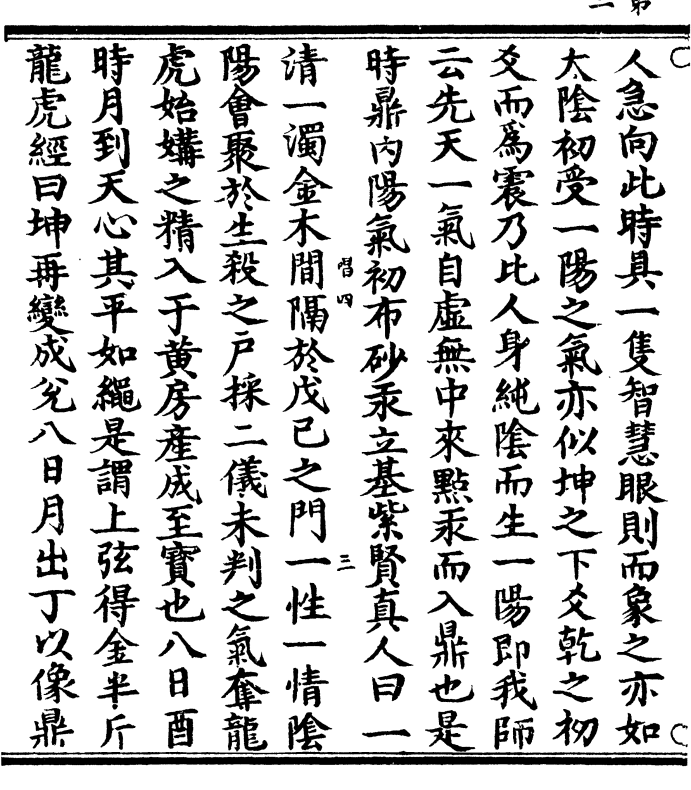 人急向此時具一隻智慧眼則而象之亦如
太陰初受一陽之氣亦似坤之下爻乾之初
爻而爲震乃比人身純陰而生一陽即我師
云先天一氣自虛無中來點汞而入鼎也是
時鼎內陽氣初布砂汞立基紫賢真人曰一
唱四
三
清一濁金木間隔於戊己之門一性一情陰
陽會聚於生殺之戶採二儀未判之氣奪龍
虎始媾之精入于黄房產成至寶也八日酉
時月到天心其平如繩是謂上弦得金半斤
龍虎經曰坤再變成兌八日月出丁以像鼎